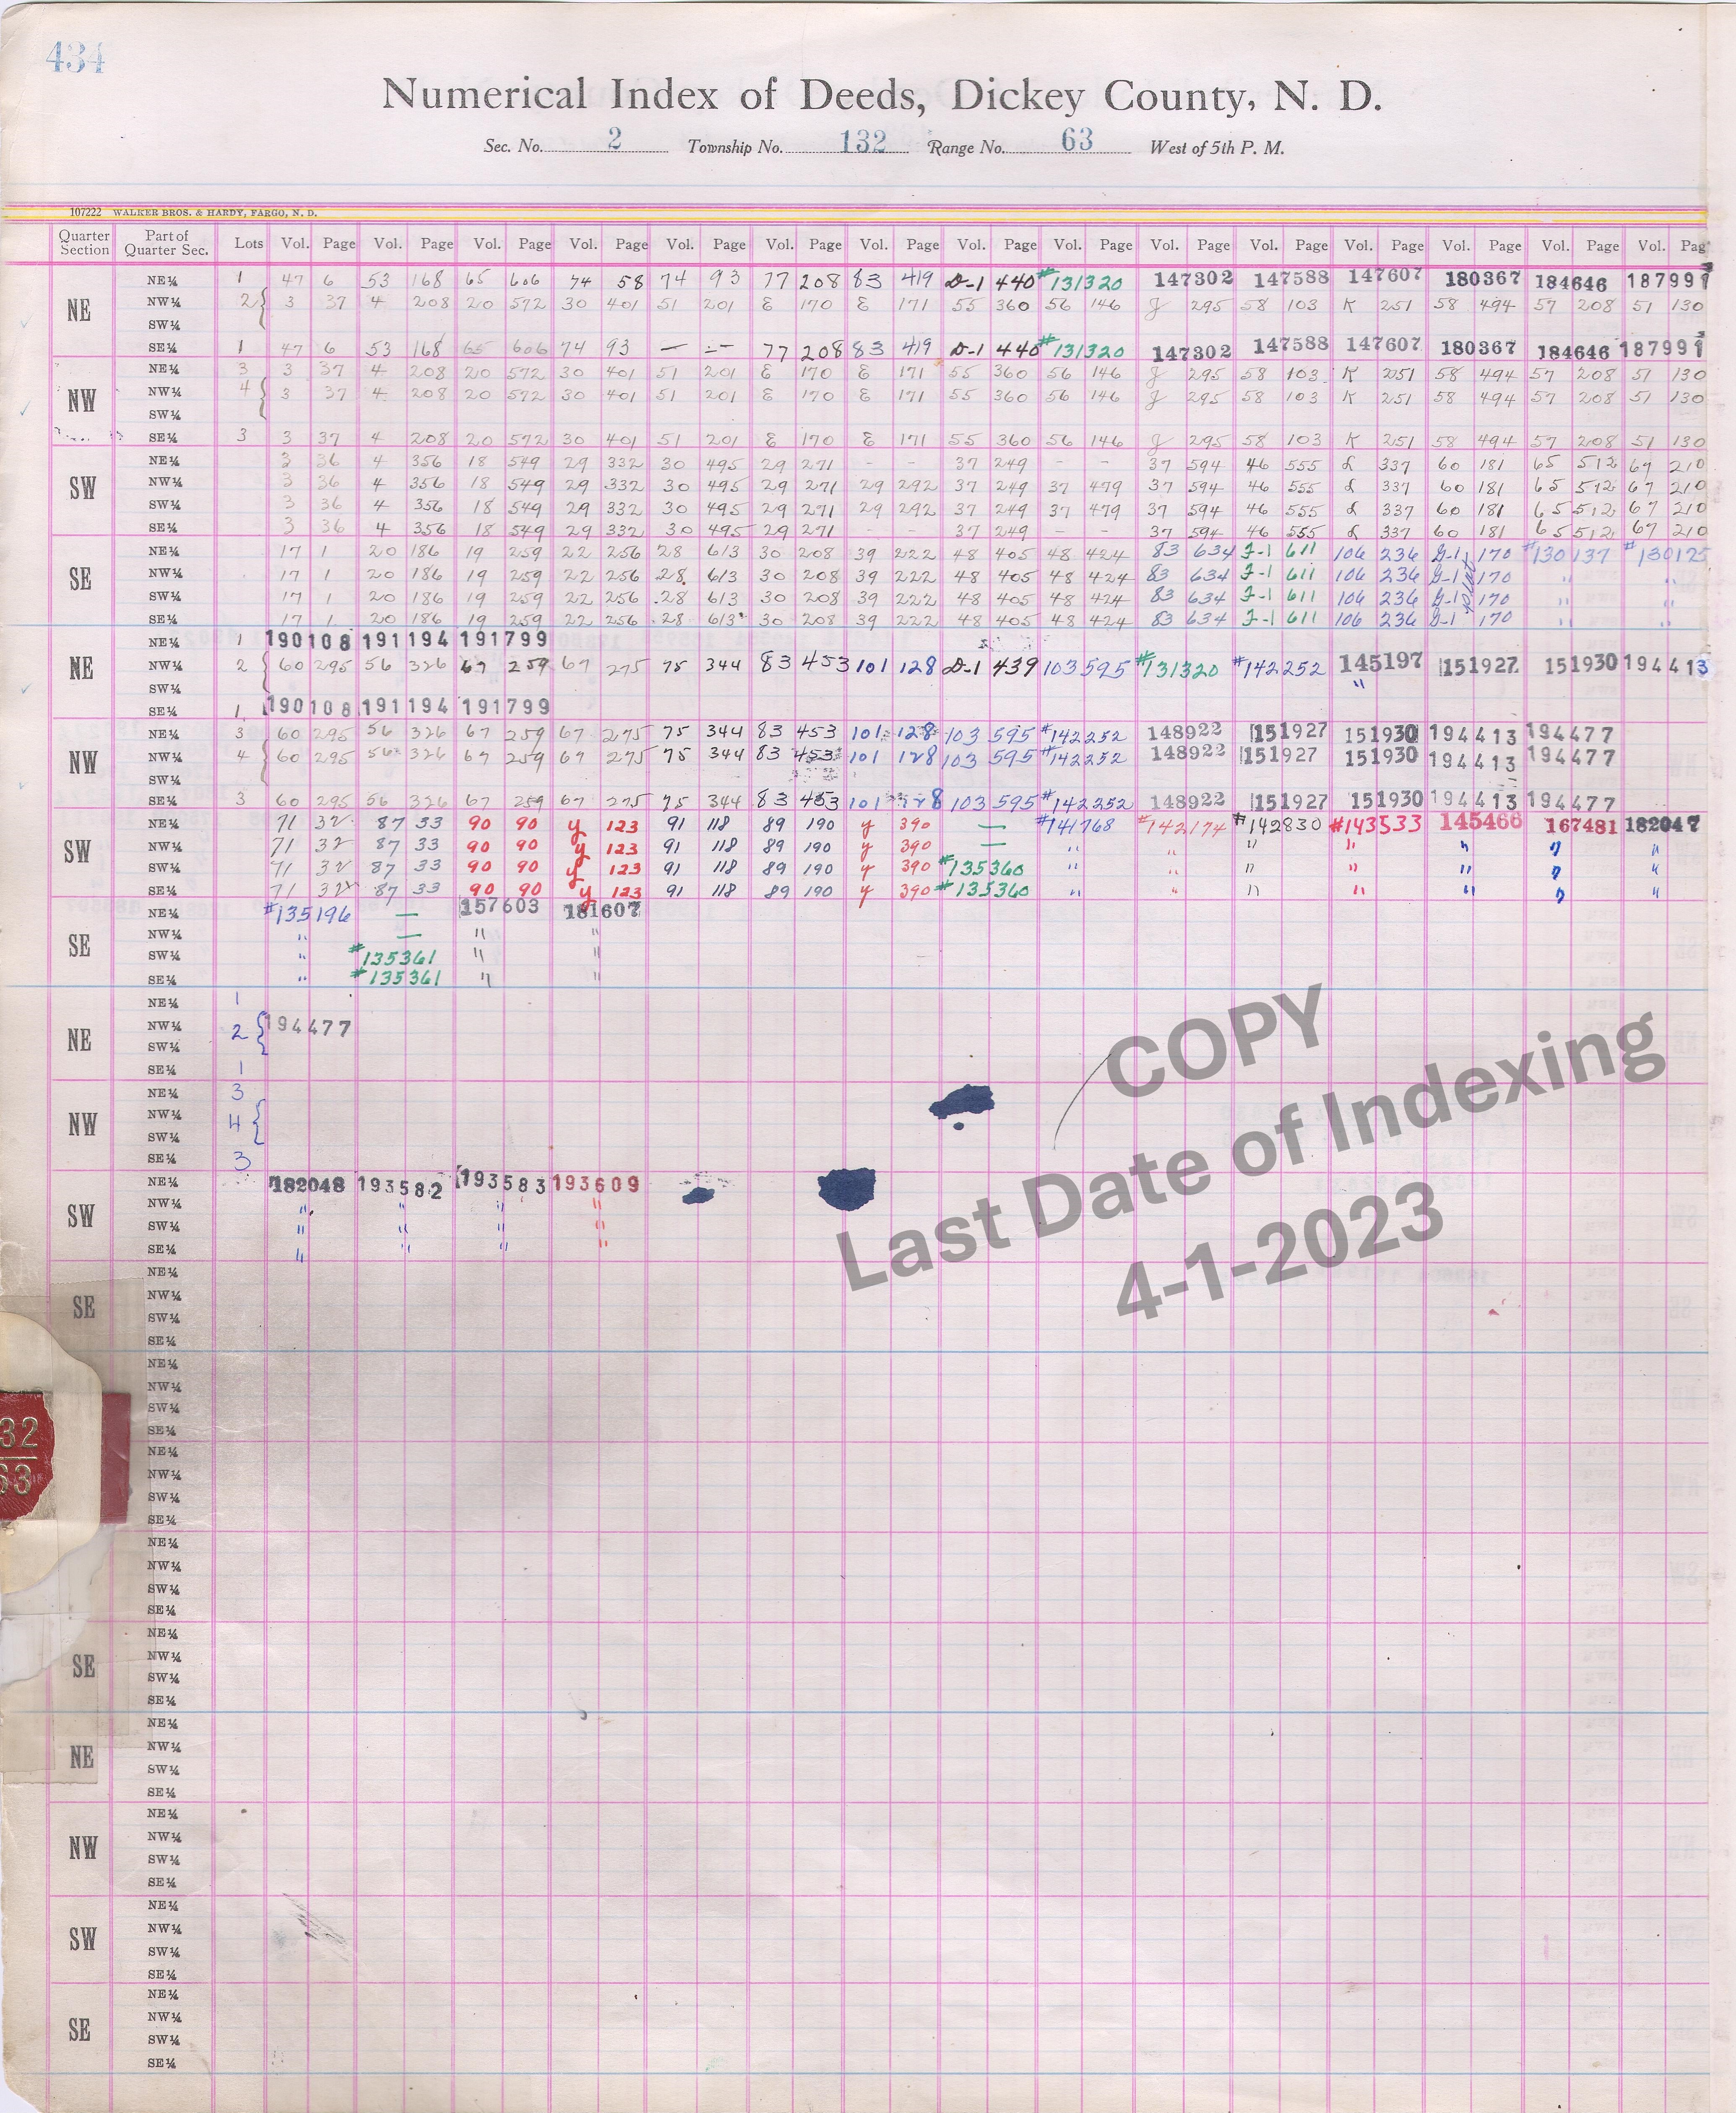 434
Numerical Index of Deeds, Dickey County, N. D.
Sec. No. 2 Township No. 132 Range No. 63 West of 5th P. M.
107222 WALKER BROS. & HARDY, FARGO, N. D.
Quarter Section Part of Quarter Sec. Lots Vol. Page Vol. Page Vol. Page Vol. Page Vol. Page Vol. Page Vol. Page Vol. Page Vol. Page Vol. Page Vol. Page Vol. Page Vol. Page Vol. Page Vol. Pag
NE
NE¼ 1 47 6 53 168 65 606 74 58 74 93 77 208 83 419 D-1 440 #131320 147302 147588 147607 180367 184646 187991
NW¼ 2 { 3 37 4 208 20 572 30 401 51 201 E 170 E 171 55 360 56 146 J 295 58 103 K 251 58 494 57 208 51 130
SW¼
SE¼ 1 47 6 53 168 65 606 74 93 — — 77 208 83 419 D-1 440 #131320 147302 147588 147607 180367 184646 187991
NW
NE¼ 3 3 37 4 208 20 572 30 401 51 201 E 170 E 171 55 360 56 146 J 295 58 103 K 251 58 494 57 208 51 130
NW¼ 4 { 3 37 4 208 20 572 30 401 51 201 E 170 E 171 55 360 56 146 J 295 58 103 K 251 58 494 57 208 51 130
SW¼
SE¼ 3 3 37 4 208 20 572 30 401 51 201 E 170 E 171 55 360 56 146 J 295 58 103 K 251 58 494 57 208 51 130
SW
NE¼ 3 36 4 356 18 549 29 332 30 495 29 271 - - 37 249 - - 37 594 46 555 L 337 60 181 65 512 67 210
NW¼ 3 36 4 356 18 549 29 332 30 495 29 271 29 292 37 249 37 479 37 594 46 555 L 337 60 181 65 512 67 210
SW¼ 3 36 4 356 18 549 29 332 30 495 29 271 29 292 37 249 37 479 37 594 46 555 L 337 60 181 65 512 67 210
SE¼ 3 36 4 356 18 549 29 332 30 495 29 271 - - 37 249 - - 37 594 46 555 L 337 60 181 65 512 67 210
SE
NE¼ 17 1 20 186 19 259 22 256 28 613 30 208 39 222 48 405 48 424 83 634 J-1 611 106 236 G-1 170 #130137 #130125
NW¼ 17 1 20 186 19 259 22 256 28 613 30 208 39 222 48 405 48 424 83 634 J-1 611 106 236 G-1 170 " "
SW¼ 17 1 20 186 19 259 22 256 28 613 30 208 39 222 48 405 48 424 83 634 J-1 611 106 236 G-1 170 " "
SE¼ 17 1 20 186 19 259 22 256 28 613 30 208 39 222 48 405 48 424 83 634 J-1 611 106 236 G-1 170 " "
NE
NE¼ 1 190108 191194 191799
NW¼ 2 { 60 295 56 326 67 259 67 275 75 344 83 453 101 128 D-1 439 103 595 #131320 #142252 145197 151927 151930 194413
SW¼ "
SE¼ 1 190108 191194 191799
NW
NE¼ 3 60 295 56 326 67 259 67 275 75 344 83 453 101 128 103 595 #142252 148922 151927 151930 194413 194477
NW¼ 4 { 60 295 56 326 67 259 67 275 75 344 83 453 101 128 103 595 #142252 148922 151927 151930 194413 194477
SW¼
SE¼ 3 60 295 56 326 67 259 67 275 75 344 83 453 101 128 103 595 #142252 148922 151927 151930 194413 194477
SW
NE¼ 71 32 87 33 90 90 y 123 91 118 89 190 y 390 — #141768 #142174 #142830 #143533 145466 167481 182047
NW¼ 71 32 87 33 90 90 y 123 91 118 89 190 y 390 — " " " " " " "
SW¼ 71 32 87 33 90 90 y 123 91 118 89 190 y 390 #135360 " " " " " " "
SE¼ 71 32 87 33 90 90 y 123 91 118 89 190 y 390 #135360 " " " " " " "
SE
NE¼ #135196 — 157603 181607
NW¼ " — " "
SW¼ " #135361 " "
SE¼ " #135361 " "
NE
NE¼ 1
NW¼ 2 { 194477
SW¼
SE¼ 1
NW
NE¼ 3
NW¼ 4 {
SW¼
SE¼ 3
SW
NE¼ 182048 193582 193583 193609
NW¼ " " " "
SW¼ " " " "
SE¼ " " " "
SE
NE¼
NW¼
SW¼
SE¼
NE¼
NW¼
SW¼
SE¼
NE¼
NW¼
SW¼
SE¼
NE¼
NW¼
SW¼
SE¼
SE
NE¼
NW¼
SW¼
SE¼
NE
NE¼
NW¼
SW¼
SE¼
NW
NE¼
NW¼
SW¼
SE¼
SW
NE¼
NW¼
SW¼
SE¼
SE
NE¼
NW¼
SW¼
SE¼
32
63
COPY
Last Date of Indexing
4-1-2023